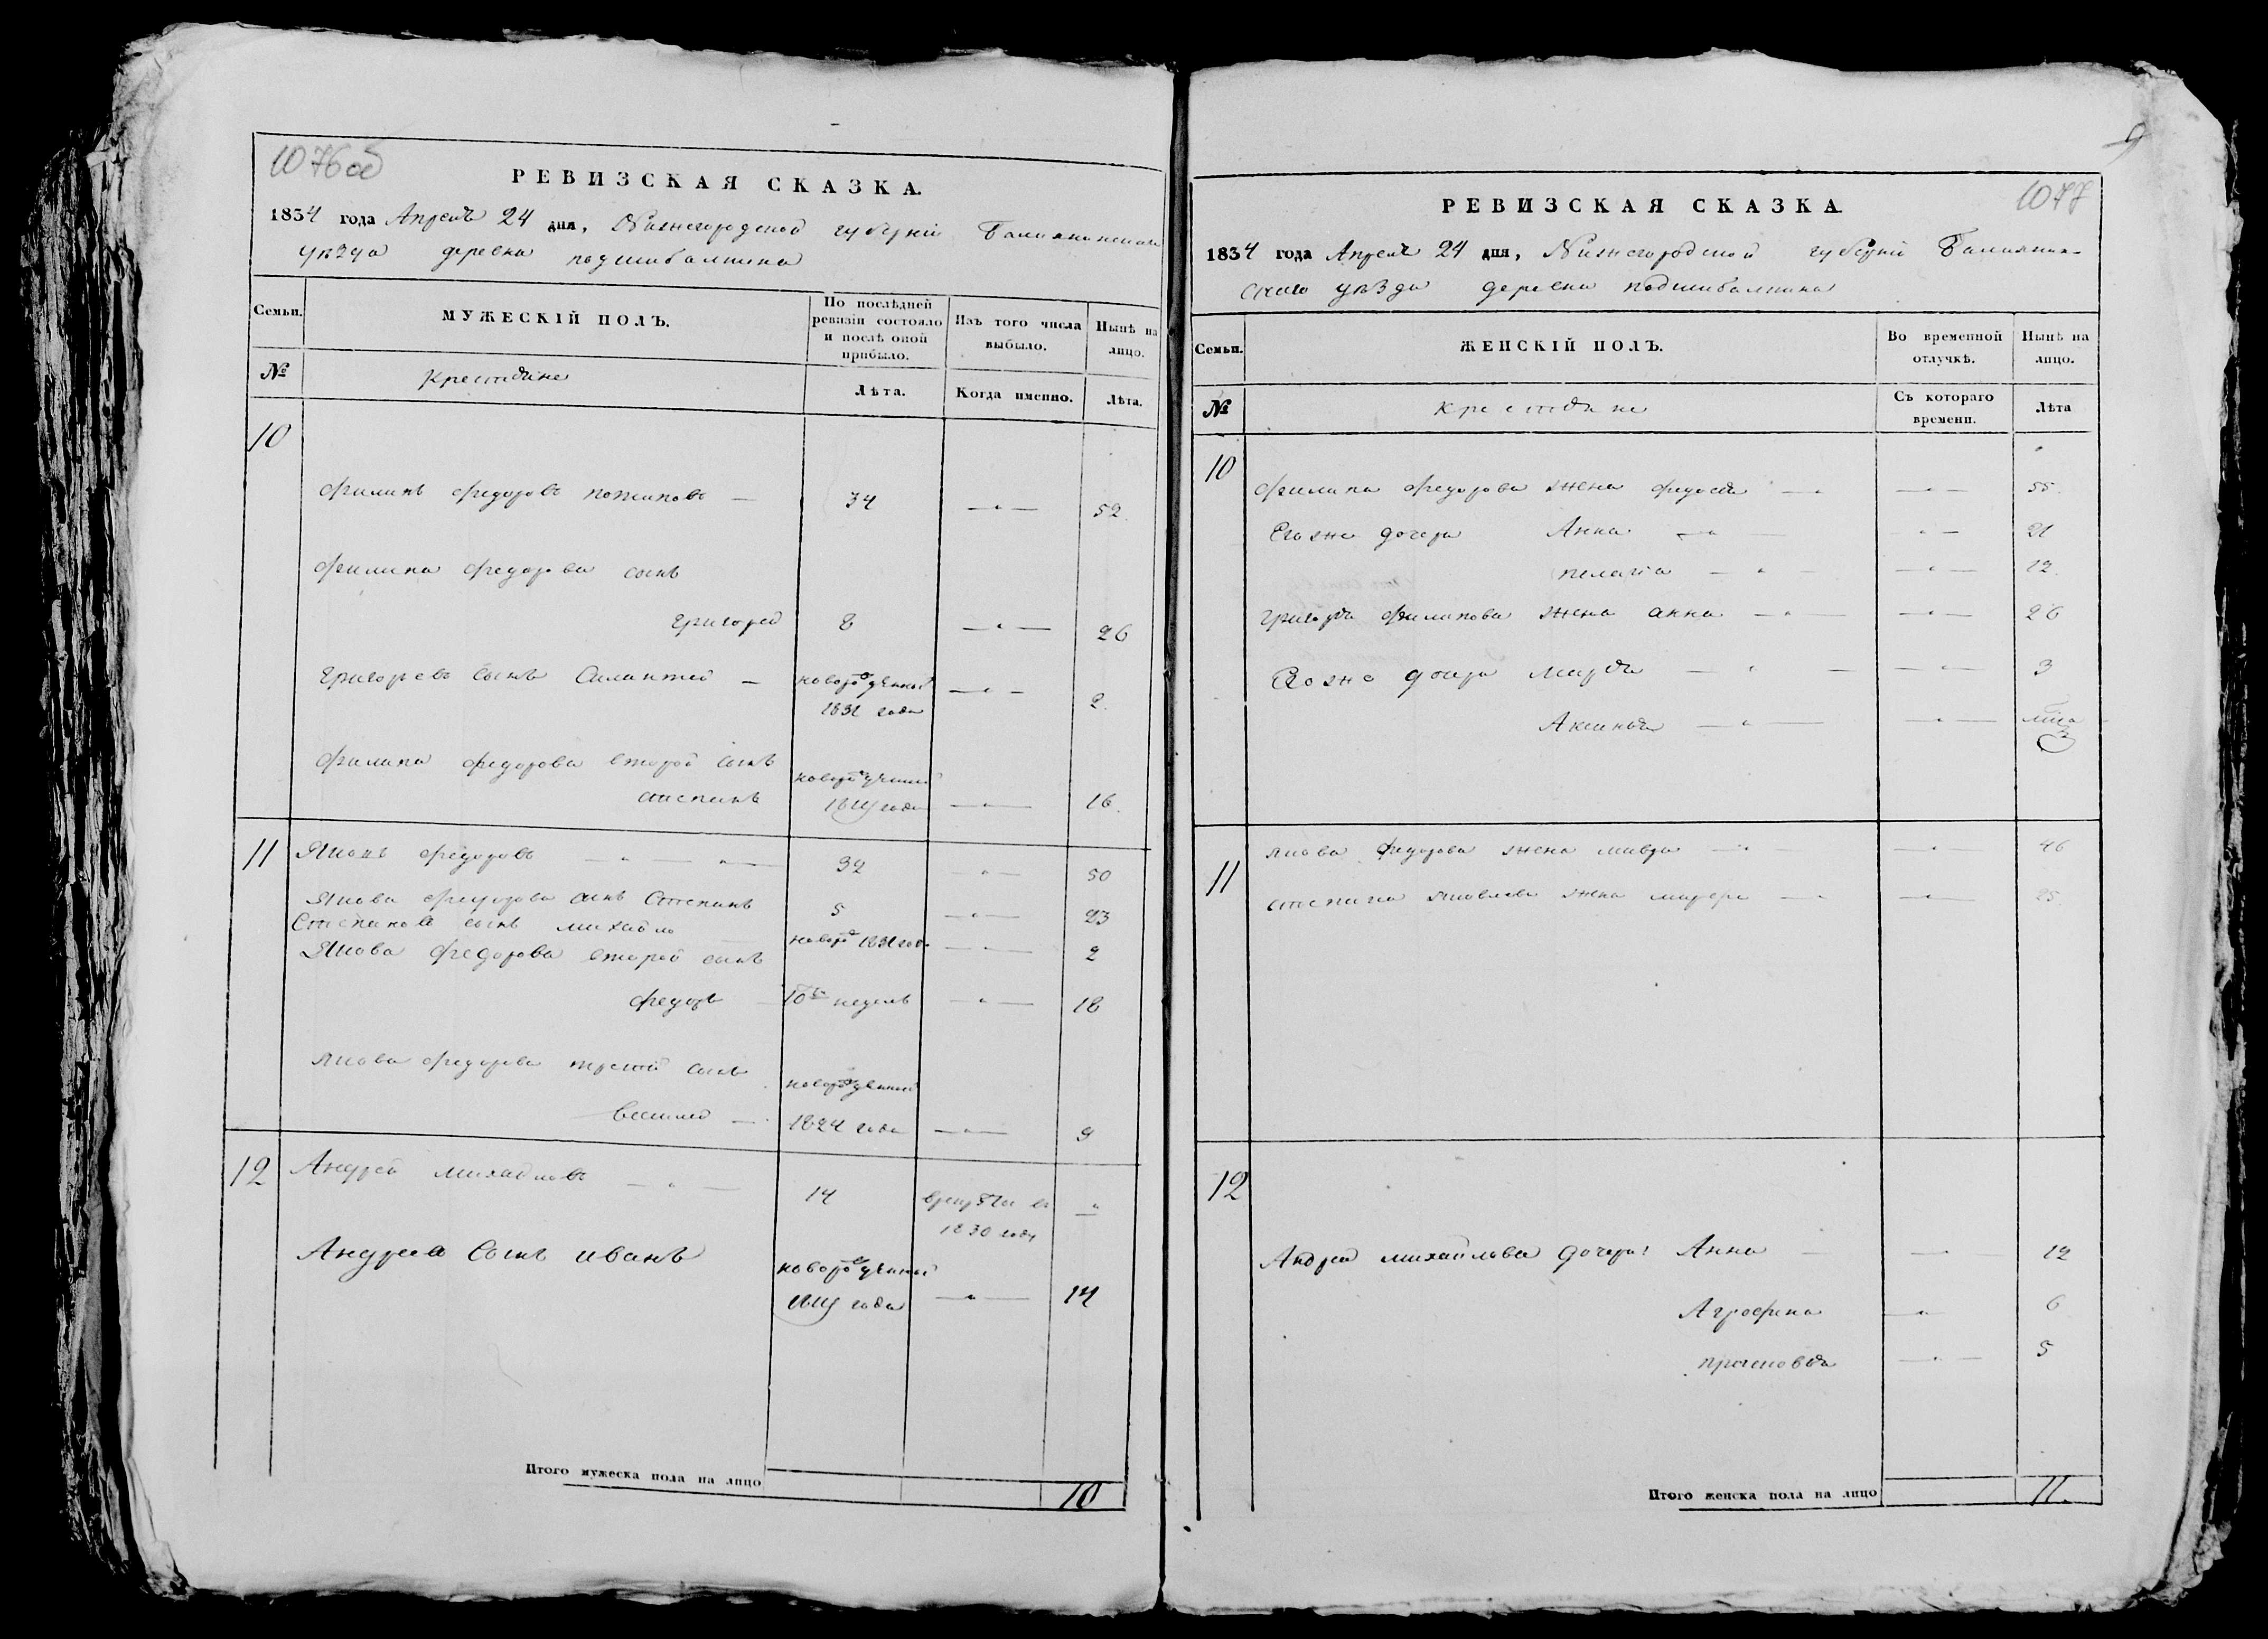 1076об
РЕВИЗСКАЯ СКАЗКА.
1834 года Апреля 24 дня, Нижегородской губерніи Балахнинскаго
уѣзда деревни подшибалкина
Семьи.
МУЖЕСКІЙ ПОЛЪ.
По послѣдней ревизіи состояло и послѣ оной прибыло.
Изъ того числа выбыло.
Нынѣ на лицо.
№
Крестьяне
Лѣта.
Когда именно.
Лѣта.
10
Филипъ Федоровъ — 34 —„— 52.
Филипа Федорова сынъ
Григорей 8 —„— 26
Григорьевъ сынъ — новорожденный —„— 2.
1831 года
Филипа Федорова второй сынъ новорожденный
степанъ года —„— 16.
11 Яковъ Федоровъ —„—„— 32 —„— 50
Якова Федорова сынъ Степанъ 5 —„— 23
Степанова сынъ михайло новорожд 1831 год —„— 2
Якова Федорова второй сынъ
Федоръ 10 недель —„— 18
Якова Федорова третій сынъ новорожденный
Василей — 1824 года —„— 9
12 Андрей михайловъ —„— 14 въ „
1830 году
Андреева Сынъ иванъ новорожденный
года —„— 14
Итого мужеска пола на лицо 10
9
1077
РЕВИЗСКАЯ СКАЗКА
1834 года Апреля 24 дня, Нижегородской губерніи Балахнин-
скаго уѣзда деревни подшибалкина
Семьи.
ЖЕНСКІЙ ПОЛЪ.
Во временной отлучкѣ.
Нынѣ на лицо.
№
Крестьяне
Съ котораго времени.
Лѣта
10
Филипа Федорова жена федосья —„ —„— 55.
Егоже дочери Анна —„— „— 21
пелагія —„— —„— 12.
григорья филипова жена анна —„— —„— 26
Егоже дочери марья —„— —„— 3
Аксинья —„— —„—
11
якова Федорова жена мавра —„— —„— 46
степана яковлева жена —„ —„— 25.
12
Андрея михайлова дочери: Анна — — 12
Агрофина —„ 6
прасковья —„— 5
Итого женска пола на лицо 11.